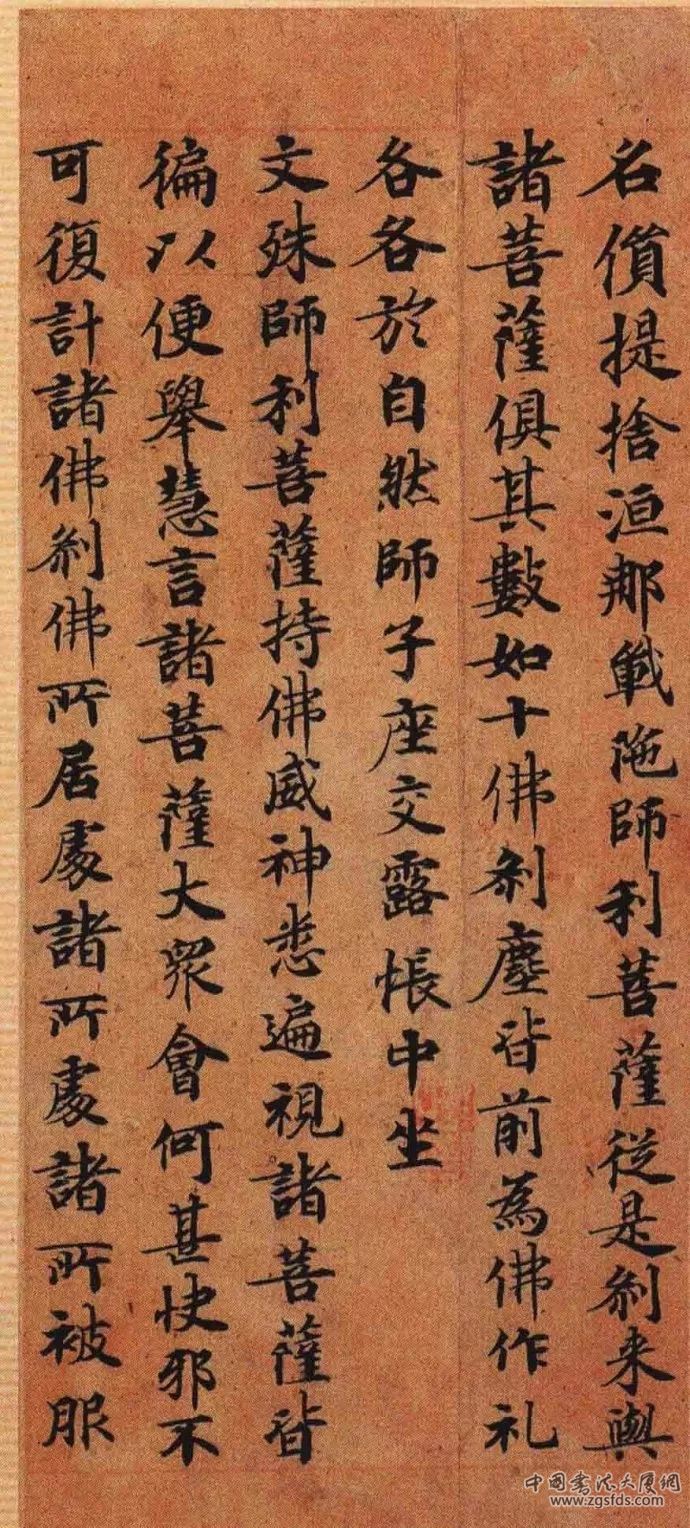 名儨提捨洹那䡾陁師利菩薩從是刹来與
諸菩薩俱其數如十佛刹塵皆前為佛作礼
各各於自然師子座交露帳中坐
文殊師利菩薩持佛威神悉遍視諸菩薩皆
徧以便舉慧言諸菩薩大衆會何甚快邪不
可復計諸佛刹佛所居處諸所處諸所被服
中国书法大厦網
www.zgsfds.com